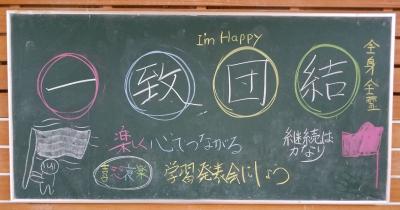 I'm Happy
一致団結
全身全霊
楽しく心でつながる
継続は
力なり
喜怒哀楽
学習発表会にしよう